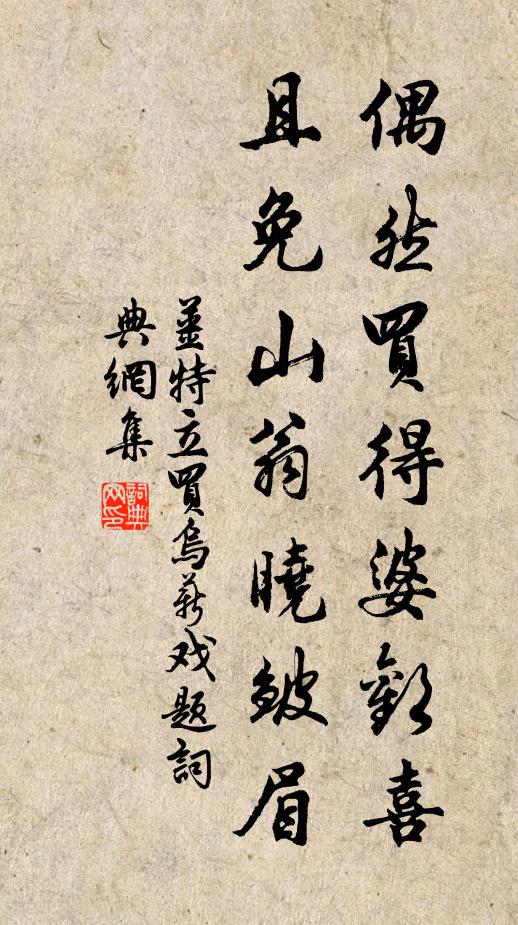 偶然買得婆歡喜
且免山翁曉皺眉
姜特立買烏薪戏題詞
典網集
詞典
网印